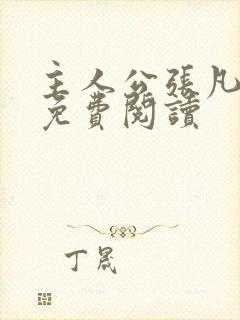 主人公張凡
免費閱讀
丁晟